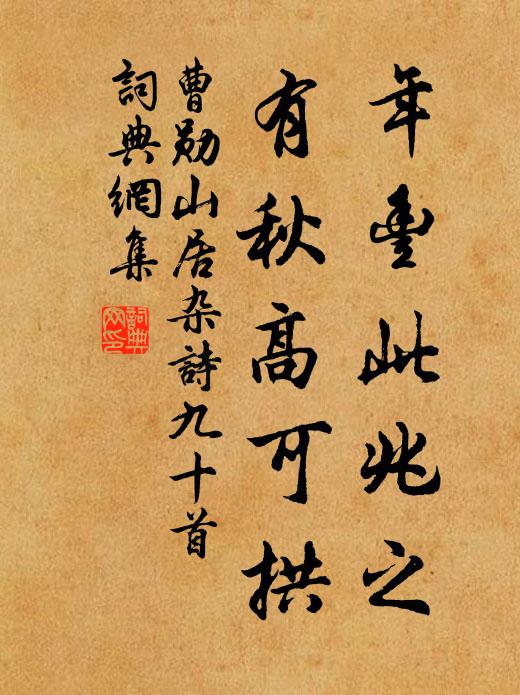 年豊此兆之
有秋高可拱
曹勋山居杂詩九十首
詞典網集
詞典網印